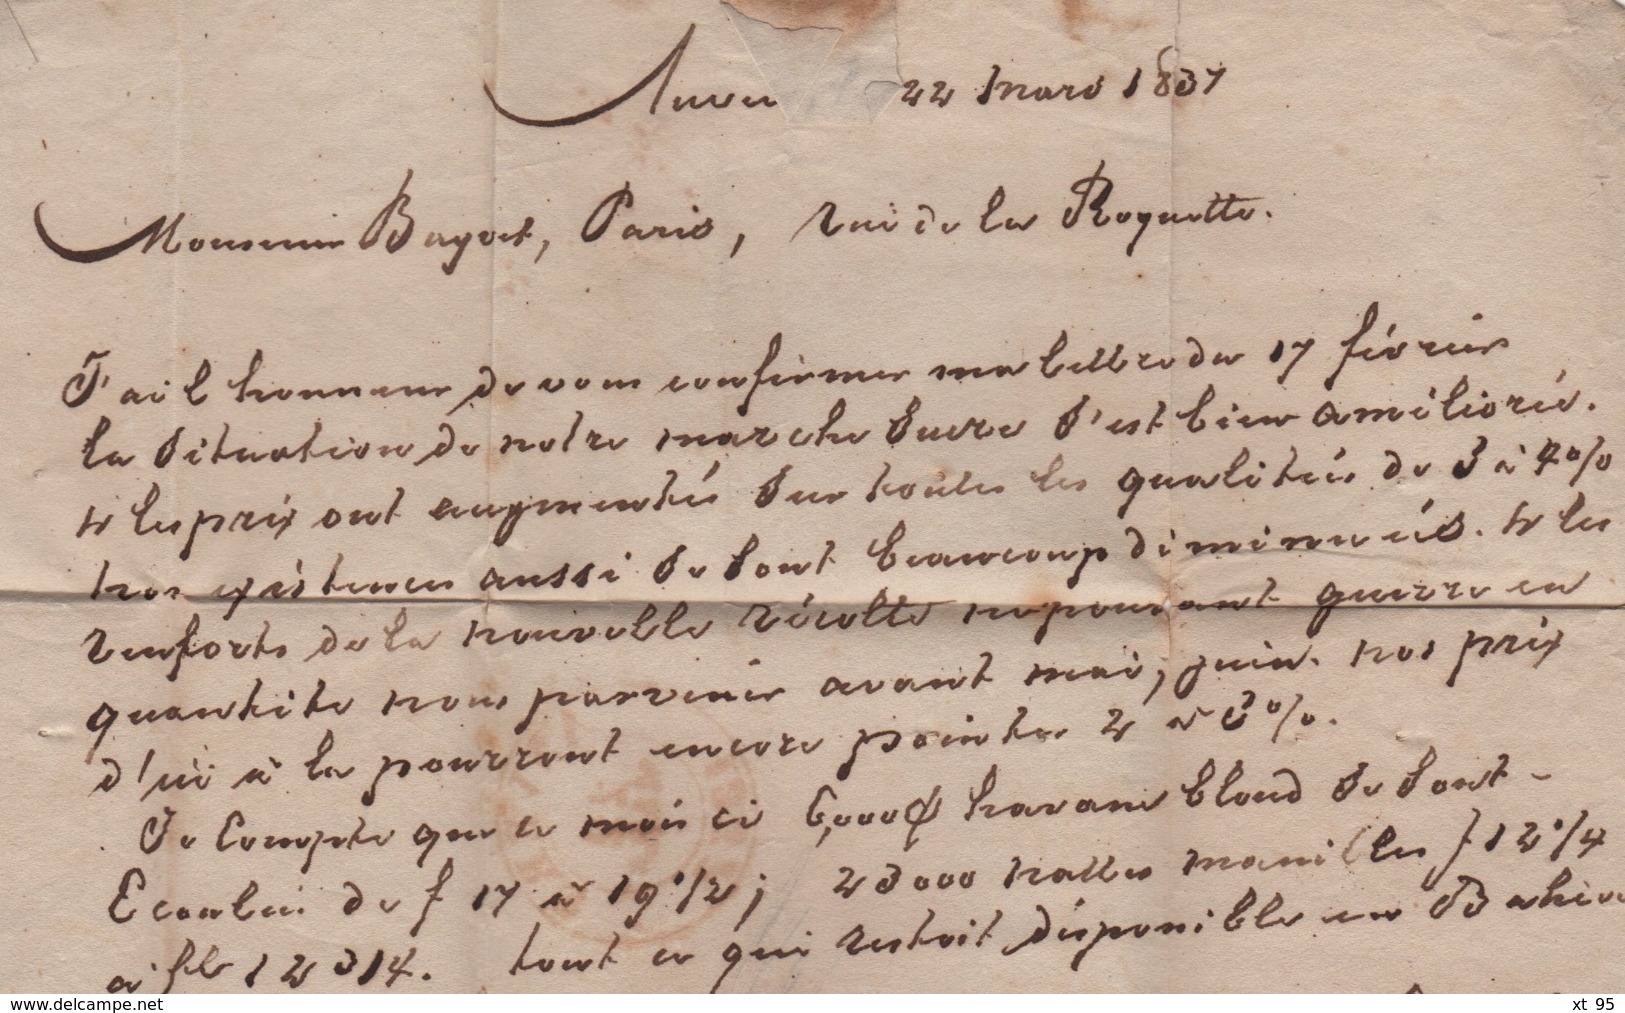 Anver 22 Mars 1837
Monsieur Bayvet, Paris, Rue de la Roquette.
J'ai l honneur de vous confirmer ma lettre du 17 février
la Situation de notre marche Sucre S'est bien améliorée.
& les prix ont augmentés Sur toutes les qualités de 3 à 4%
nos existences aussi Se Sont beaucoup diminuées. & les
renforts de la nouvelle récolte ne pouvant guerre en
quantite nous parvenir avant mai, juin. nos prix
d'ici à la pourront encore pointer 2 a 3%.
Je Compte que ce mois ci 6,000 havane blond Se Sont -
Ecoulees de f 17 à 19 1/2; 23000 nattes manilles f 12 1/4
a 12 3/4. tout ce qui restoit disponible en Bahia
www.delcampe.net
xt_95